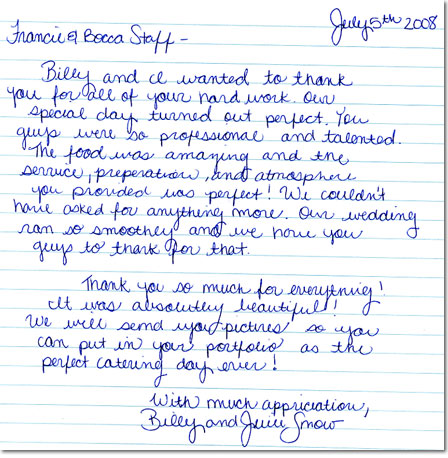 July 5th 2008
Francie & Bocca Staff -
Billy and I wanted to thank
you for all of your hard work. Our
special day turned out perfect. You
guys were so professional and talented.
The food was amazing and the
service, preperation, and atmosphere
you provided was perfect! We couldn't
have asked for anything more. Our wedding
ran so smoothly and we have you
guys to thank for that.
Thank you so much for everything!
It was absolutely beautiful!
We will send you pictures so you
can put in your portfolio as the
perfect catering day ever!
With much appriciation,
Billy and Snow